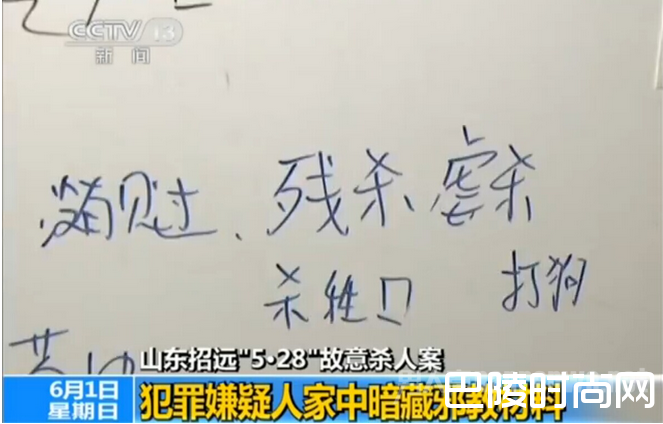 CCTV 13
新闻
没有见过、残杀虐杀
杀牲口 打狗
山东招远"5·28"故意杀人案
6月1日
星期日
犯罪嫌疑人家中暗藏邪教材料
巴陵时尚网